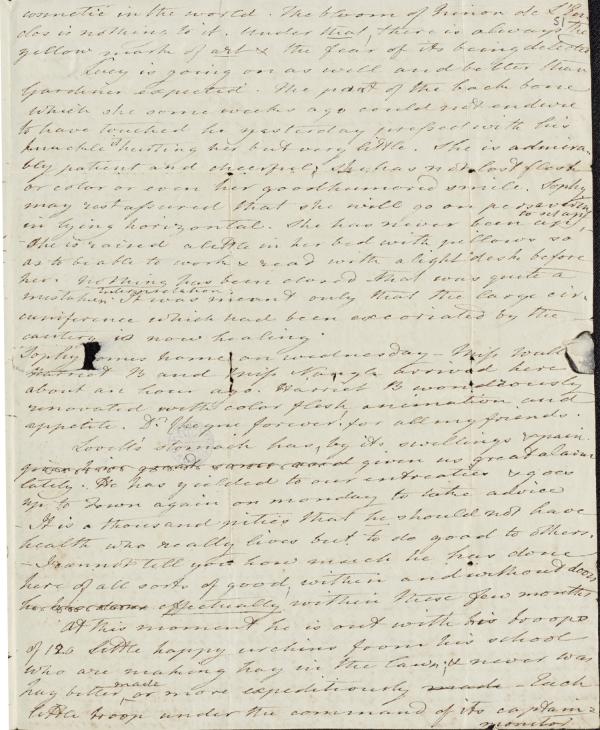 cosmetic in the world. The bloom of Ninon de L'En
51
clos is nothing to it. Under that, there is always the
yellow mark of art & the fear of its being detected
Lucy is going on as well and better than
Gardiner expected. The part of the back bone
which she some weeks ago could not endure
to have touched he yesterday pressed with his
knuckle hurting her but very little. She is admira
bly patient and cheerful; She has not lost flesh
or color or even her goodhumored smile. Sophy
may rest assured that she will go on persevering
in lying horizontal. She has never been up
She is raised a little in her bed with pillows so
as to be able to work & read with a light desk before
her. Nothing has been closed that was quite a
mistaken interpretation. It was meant only that the large cir
cumference which had been excoriated by the
cautery is now healing
Sophy comes home on Wednesday – Miss
Harriet B and Miss Nangle arrived here
about an hour ago. Harriet B wonderously
renovated with color flesh animation and
appetite. Dr. Cheyne forever for all my friends.
Lovell's stomach has, by its swellings & pain
given us great alarm
lately. He has yielded to our entreaties & goes
up to town again on monday to take advice
It is a thousand pities that he should not have
health who really lives but to do good to others.
– I cannot tell you how much he has done
here of all sorts of good, within and without doors
effectually within these few months
At this moment he is out with his troops
of 120 little happy urchins from his school
who are making hay in the lawn, & never was
hay better made or more expeditiously made – Each
little troop under the command of its captain =
monitor